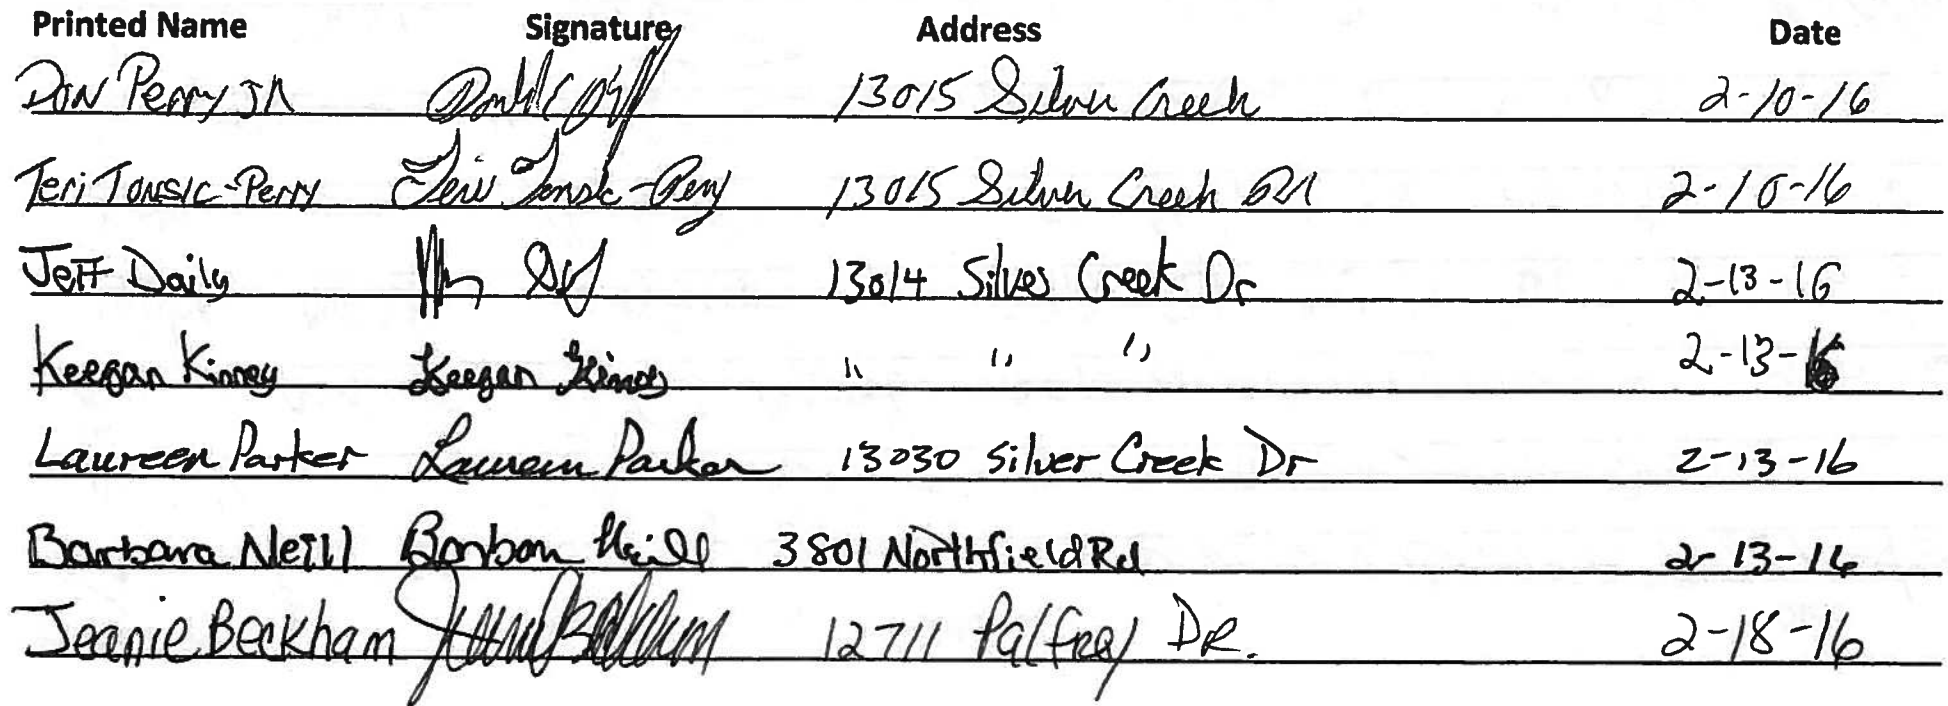 Printed Name Signature Address Date
Don Perry JR 13015 Silver Creek 2-10-16
Teri Tonsic-Perry Teri Tonsic-Perry 13015 Silver Creek DR 2-10-16
Jeff Daily 13014 Silver Creek Dr 2-13-16
Keegan Kinney Keegan Kinney " " " 2-13-16
Laureen Parker Laureen Parker 13030 Silver Creek Dr 2-13-16
Barbara Neill Barbara Neill 3801 Northfield Rd 2-13-16
Jeanie Beckham Jeanie Beckham 12711 Palfrey DR. 2-18-16